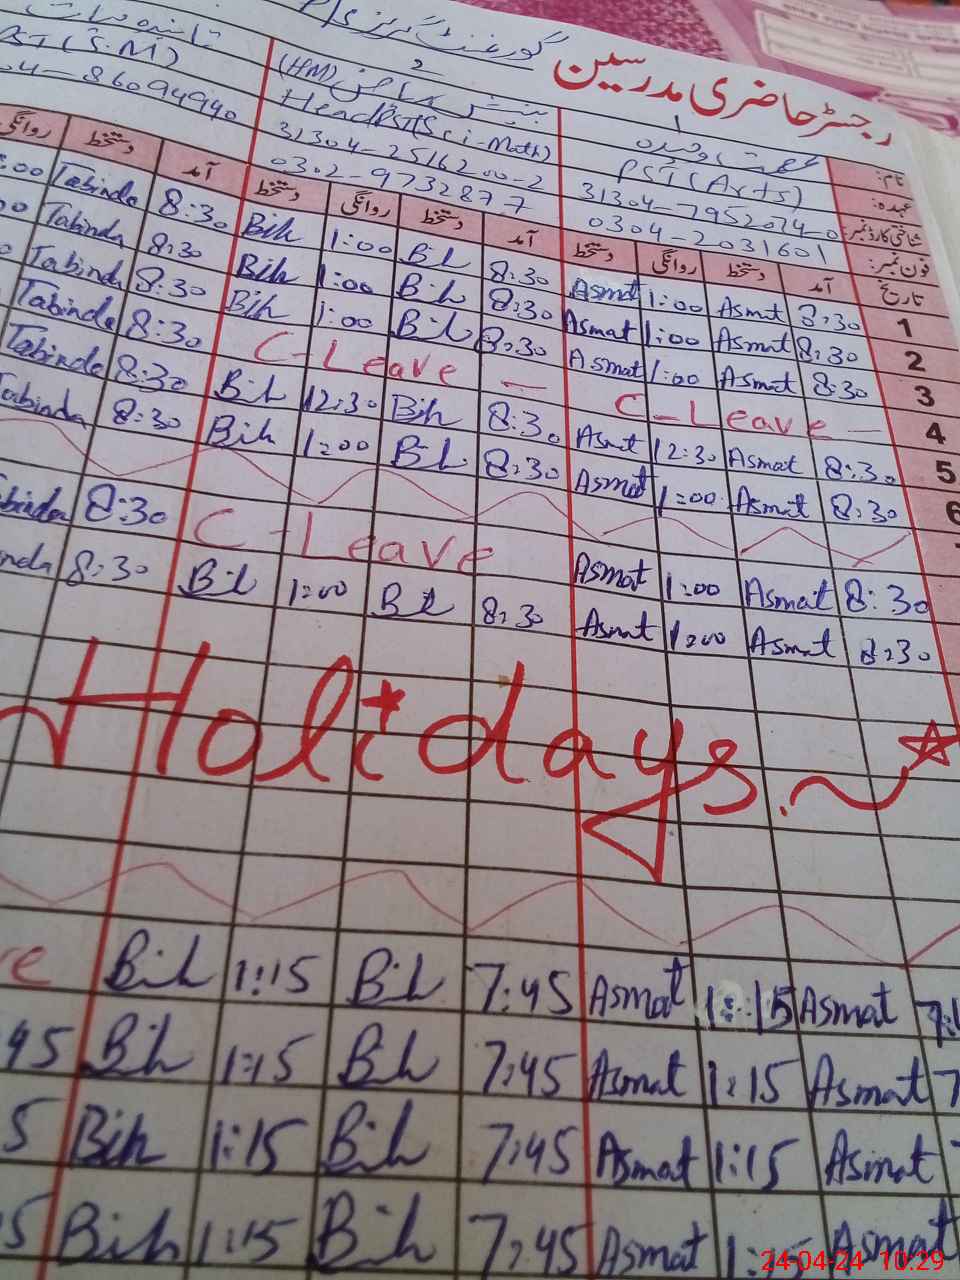 رجسٹر حاضری مدرسین گورنمنٹ گرلز
نام: عصمت وحیدہ
(HM)
عہدہ: PST (Arts) Head PST (Sci-Math) PST (S.M)
شناختی کارڈ نمبر: 31304-7952074-0 31304-2516200-2
فون نمبر: 0304-2031601 0302-9732877 04-86094940
تاریخ آمد دستخط روانگی دستخط آمد دستخط روانگی دستخط آمد دستخط روانگی
1 8:30 Asmat 1:00 Asmat 8:30 Bih 1:00 Bih 8:30 Tabinda :00
2 8:30 Asmat 1:00 Asmat 8:30 Bih 1:00 Bih 8:30 Tabinda
3 8:30 Asmat 1:00 Asmat 8:30 Bih 1:00 Bih 8:30 Tabinda
4 C-Leave - C-Leave - 8:30 Tabinda
5 8:30 Asmat 12:30 Asmat 8:30 Bih 12:30 Bih 8:30 Tabinda
6 8:30 Asmat 1:00 Asmat 8:30 Bih 1:00 Bih 8:30 Tabinda
8:30 Asmat 1:00 Asmat C-Leave 8:30 abinda
8:30 Asmat 1:00 Asmat 8:30 Bih 1:00 Bih 8:30 nda
Holidays.
Asmat 1:15 Asmat 7:45 Bih 1:15 Bih e
7 Asmat 1:15 Asmat 7:45 Bih 1:15 Bih 45
Asmat 1:15 Asmat 7:45 Bih 1:15 Bih 5
Asmat Asmat 7:45 Bih 1:15 Bih 5
24-04-24 10:29